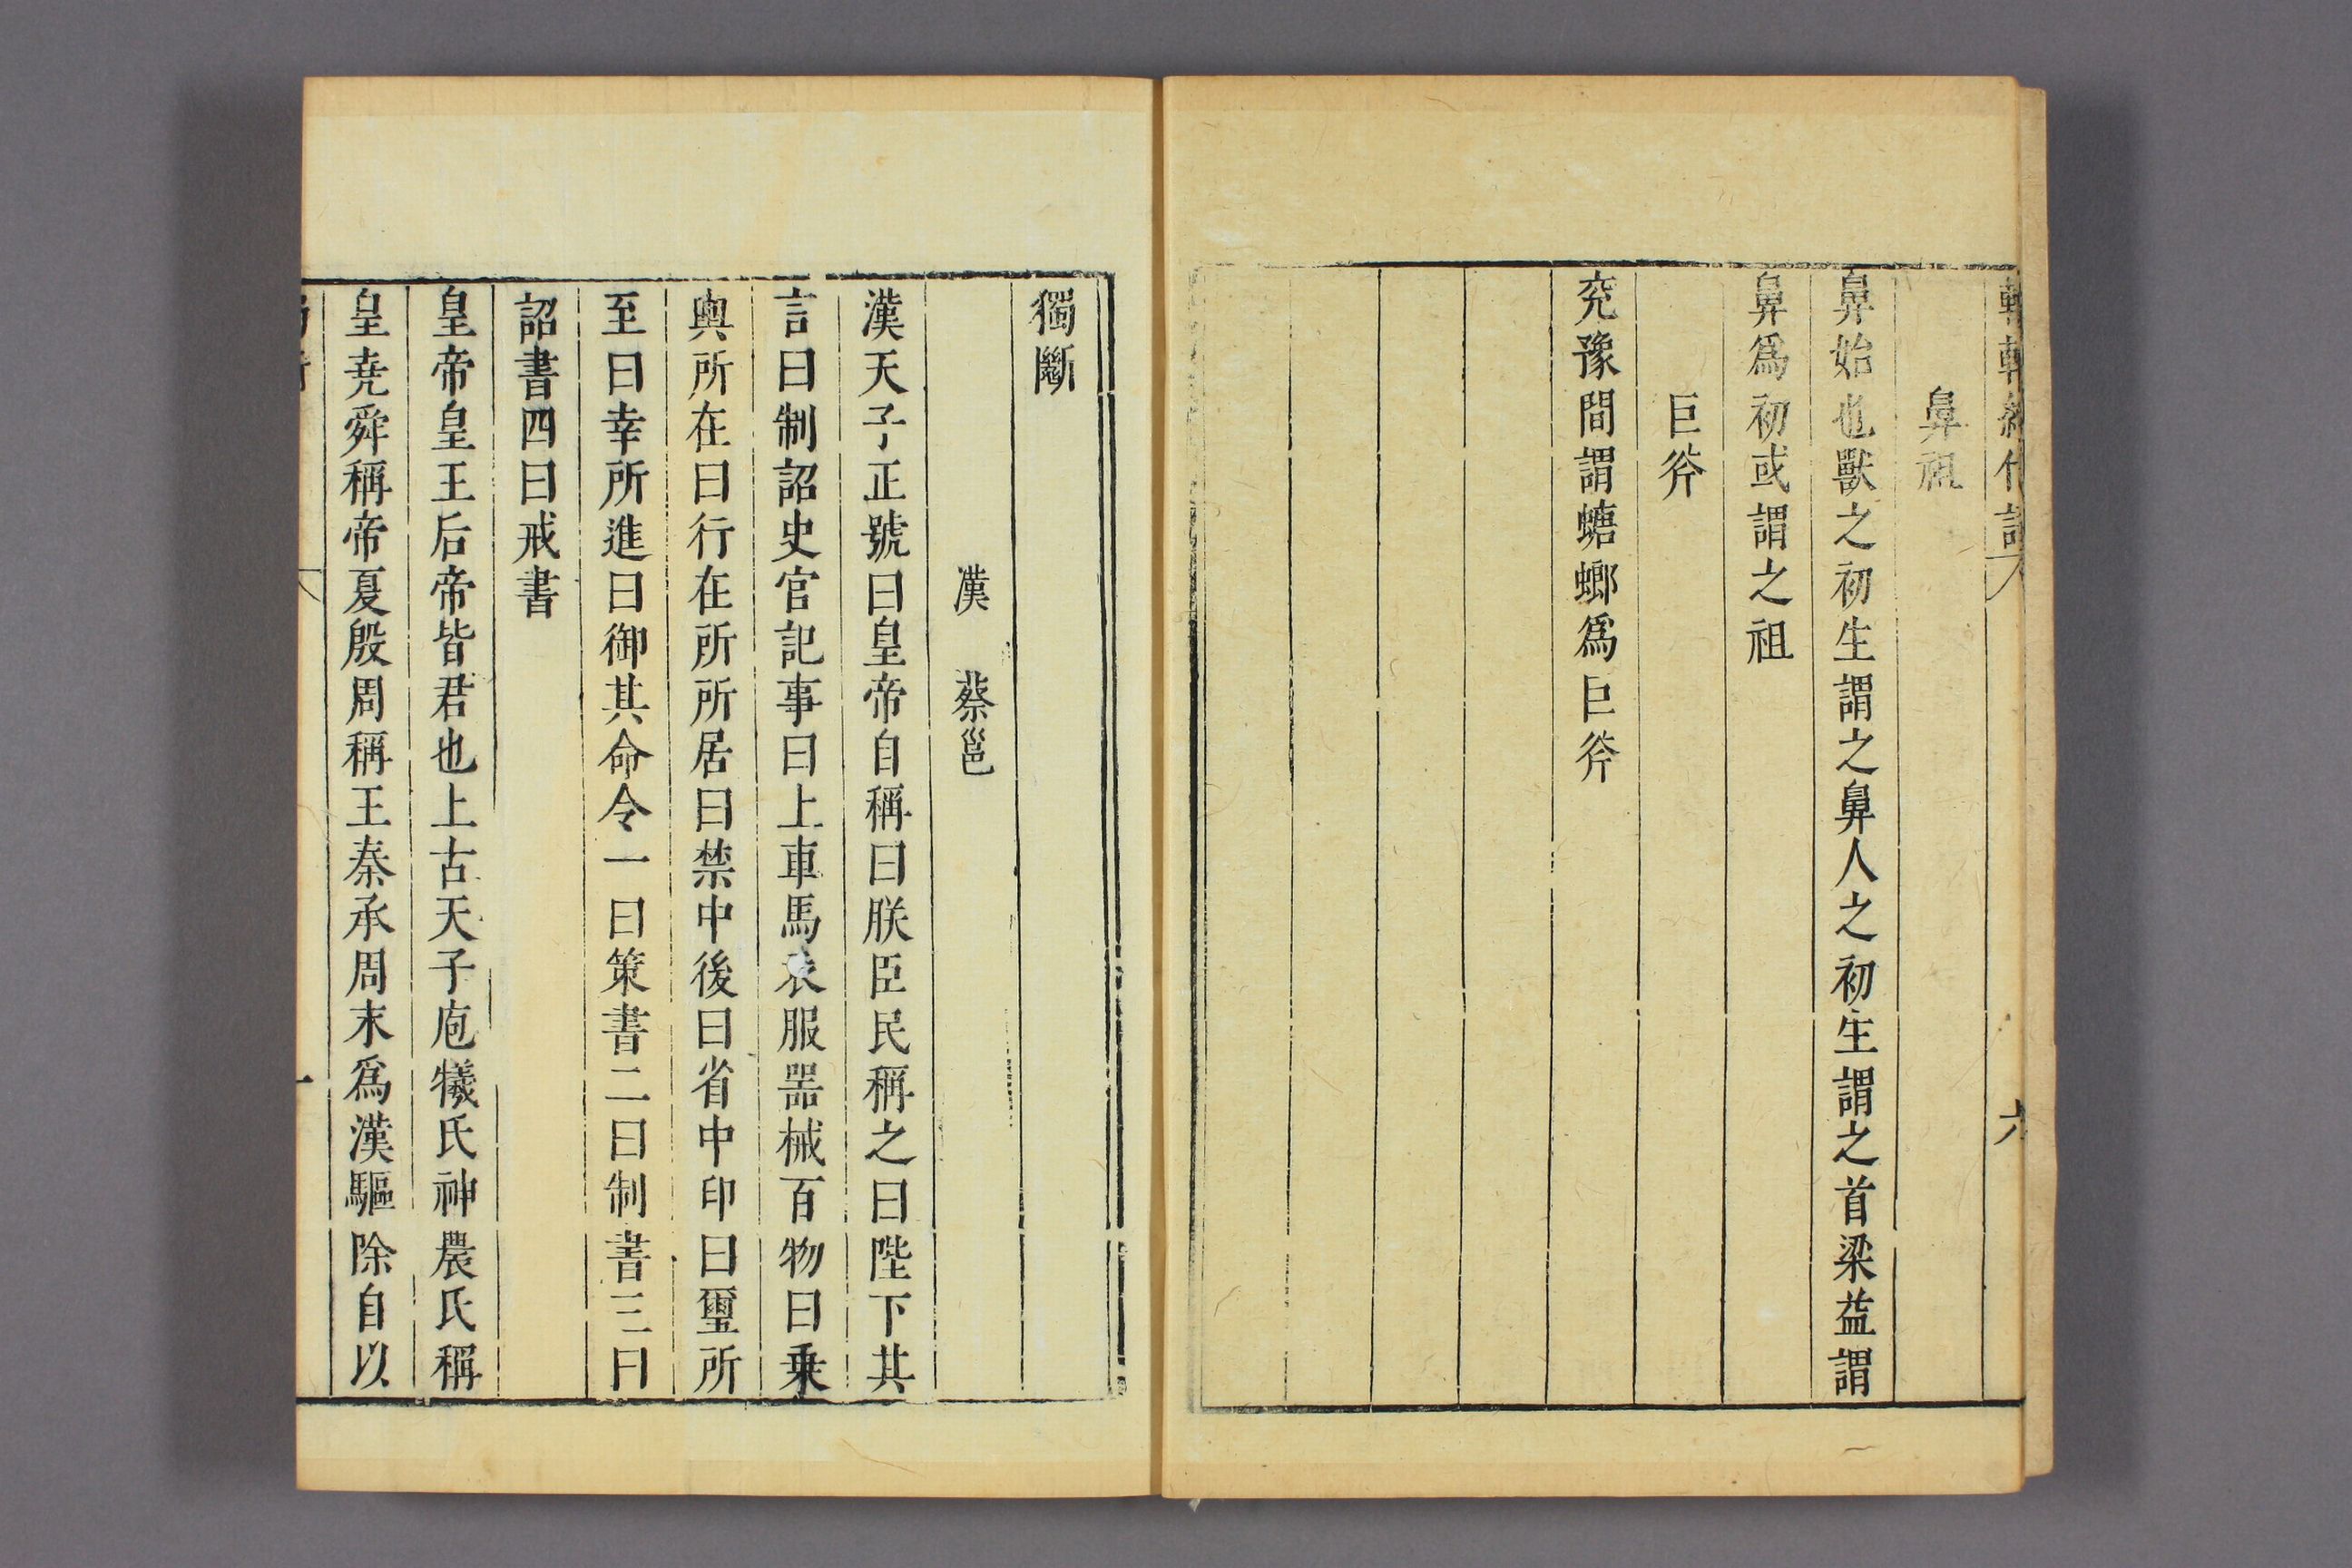 鼻祖
鼻始也獸之初生謂之鼻人之初生謂之首梁益謂
鼻爲初或謂之祖
巨斧
兖豫間謂螗螂爲巨斧
六
獨斷
漢 蔡邕
漢天子正號曰皇帝自稱曰朕臣民稱之曰陛下其
言曰制詔史官記事曰上車馬衣服器械百物曰乗
輿所在曰行在所所居曰禁中後曰省中印曰璽所
至曰幸所進曰御其命令一曰策書二曰制書三曰
詔書四曰戒書
皇帝皇王后帝皆君也上古天子庖犧氏神農氏稱
皇堯舜稱帝夏殷周稱王秦承周末爲漢驅除自以